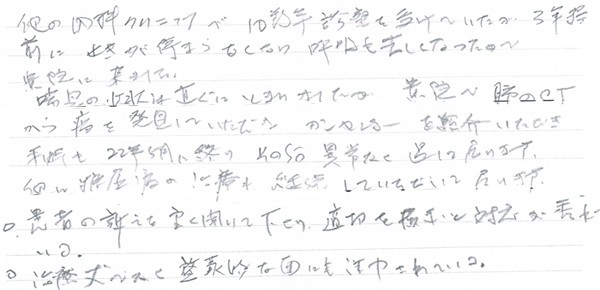 他の内科クリニックで10数年診察を受けていたが3年程
前にせきが停まらなくなり呼吸も苦しくなったので
貴院に来ました。
喘息の症状は直ぐに していたが 貴院で肺のCT
から癌を発見していただき ガンセンターを紹介いただき
手術も22年5月に終り その后異常なく過して居ります。
他に 病の治療も継続していただいて居ります。
○患者の訴えを良く聞いて下さり、適切な 対応が素晴
○治療丈でなく な面にも注力されている。